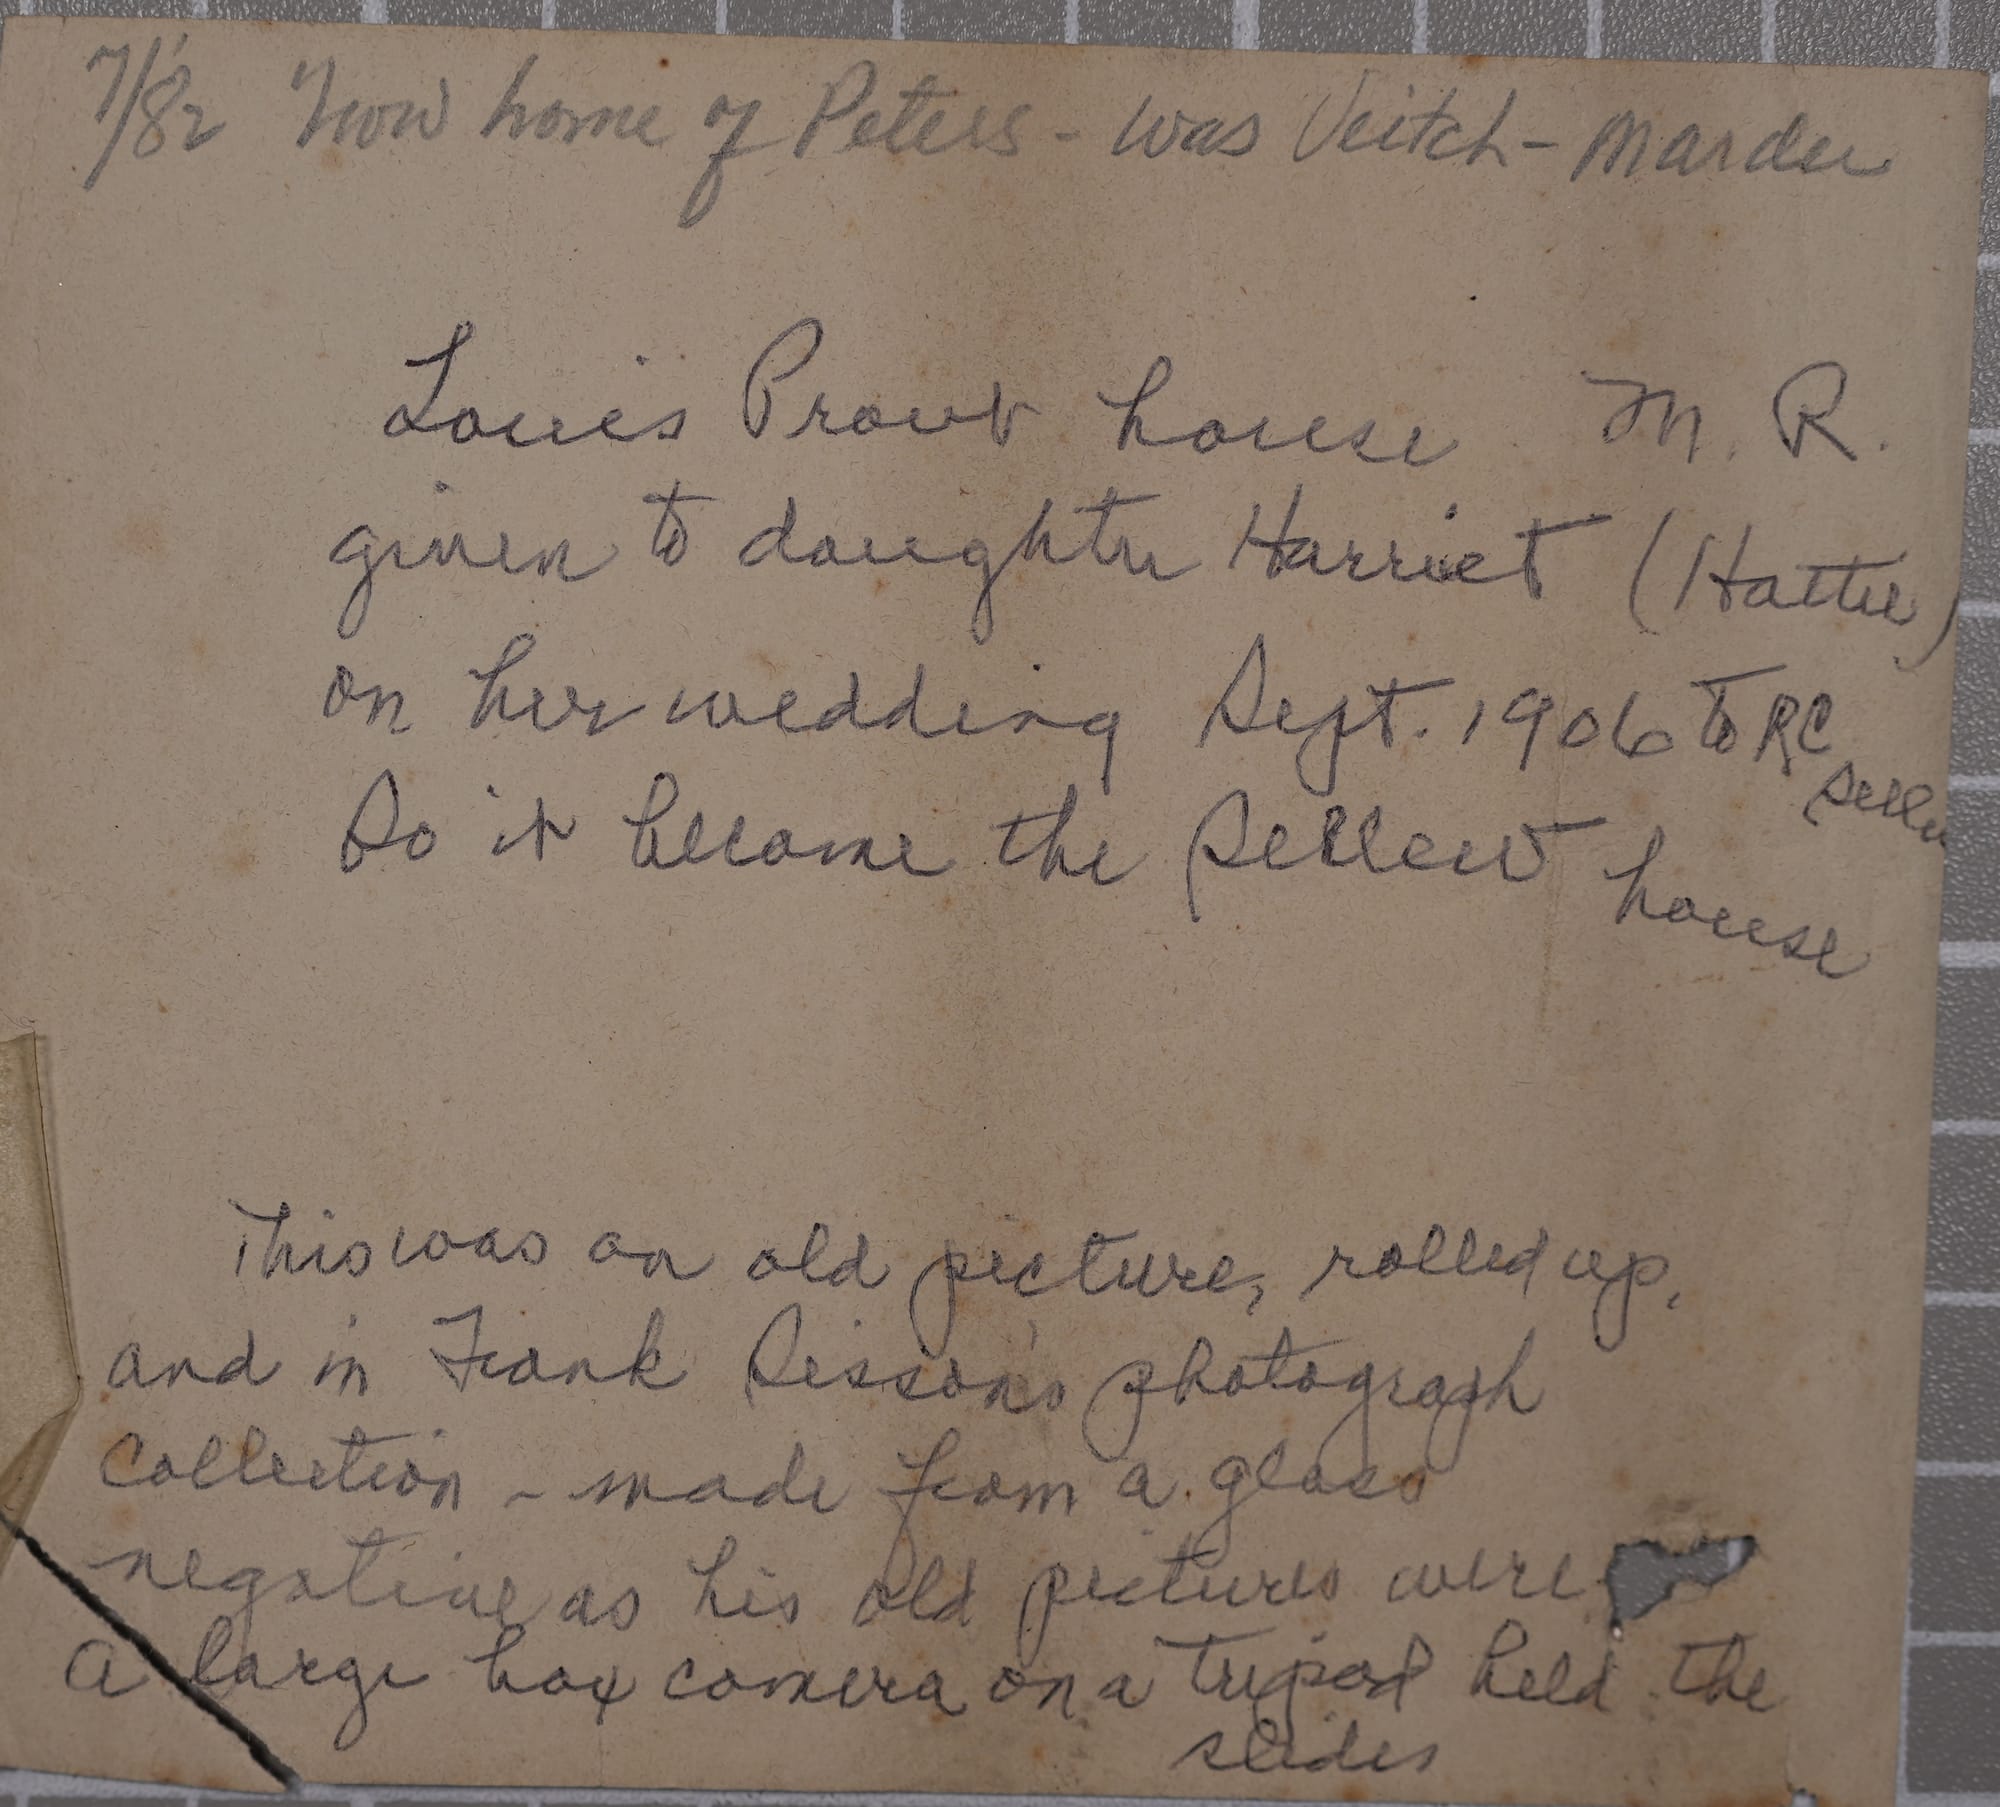 7/82 Now home of Peters - was Veitch - Marder
Louis Prout house M. R.
given to daughter Harriet (Hattie)
on her wedding Sept. 1906 to RC
Sellew
So it became the Sellew house
This was an old picture, rolled up,
and in Frank Sisson's photograph
collection - made from a glass
negative as his old pictures were
a large box camera on a tripod held the
slides